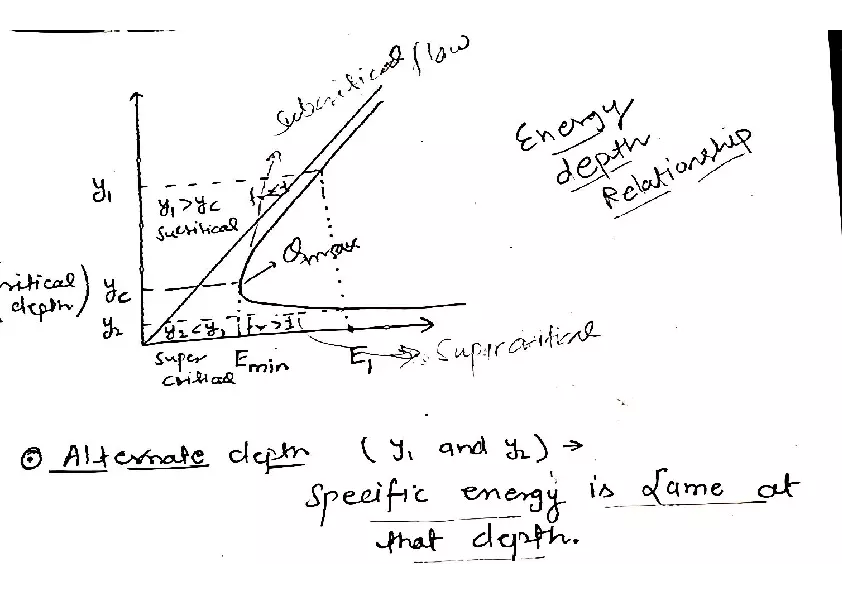 Subcritical flow
Energy
depth
Relationship
y1
y1>yc
Sucritical
Qmax
critical
depth) yc
y2
y2<y1 Fr>1
Super
critical
Emin
E1
Supercritical
Alternate depth (y1 and y2) →
Specific energy is same at
that depth.